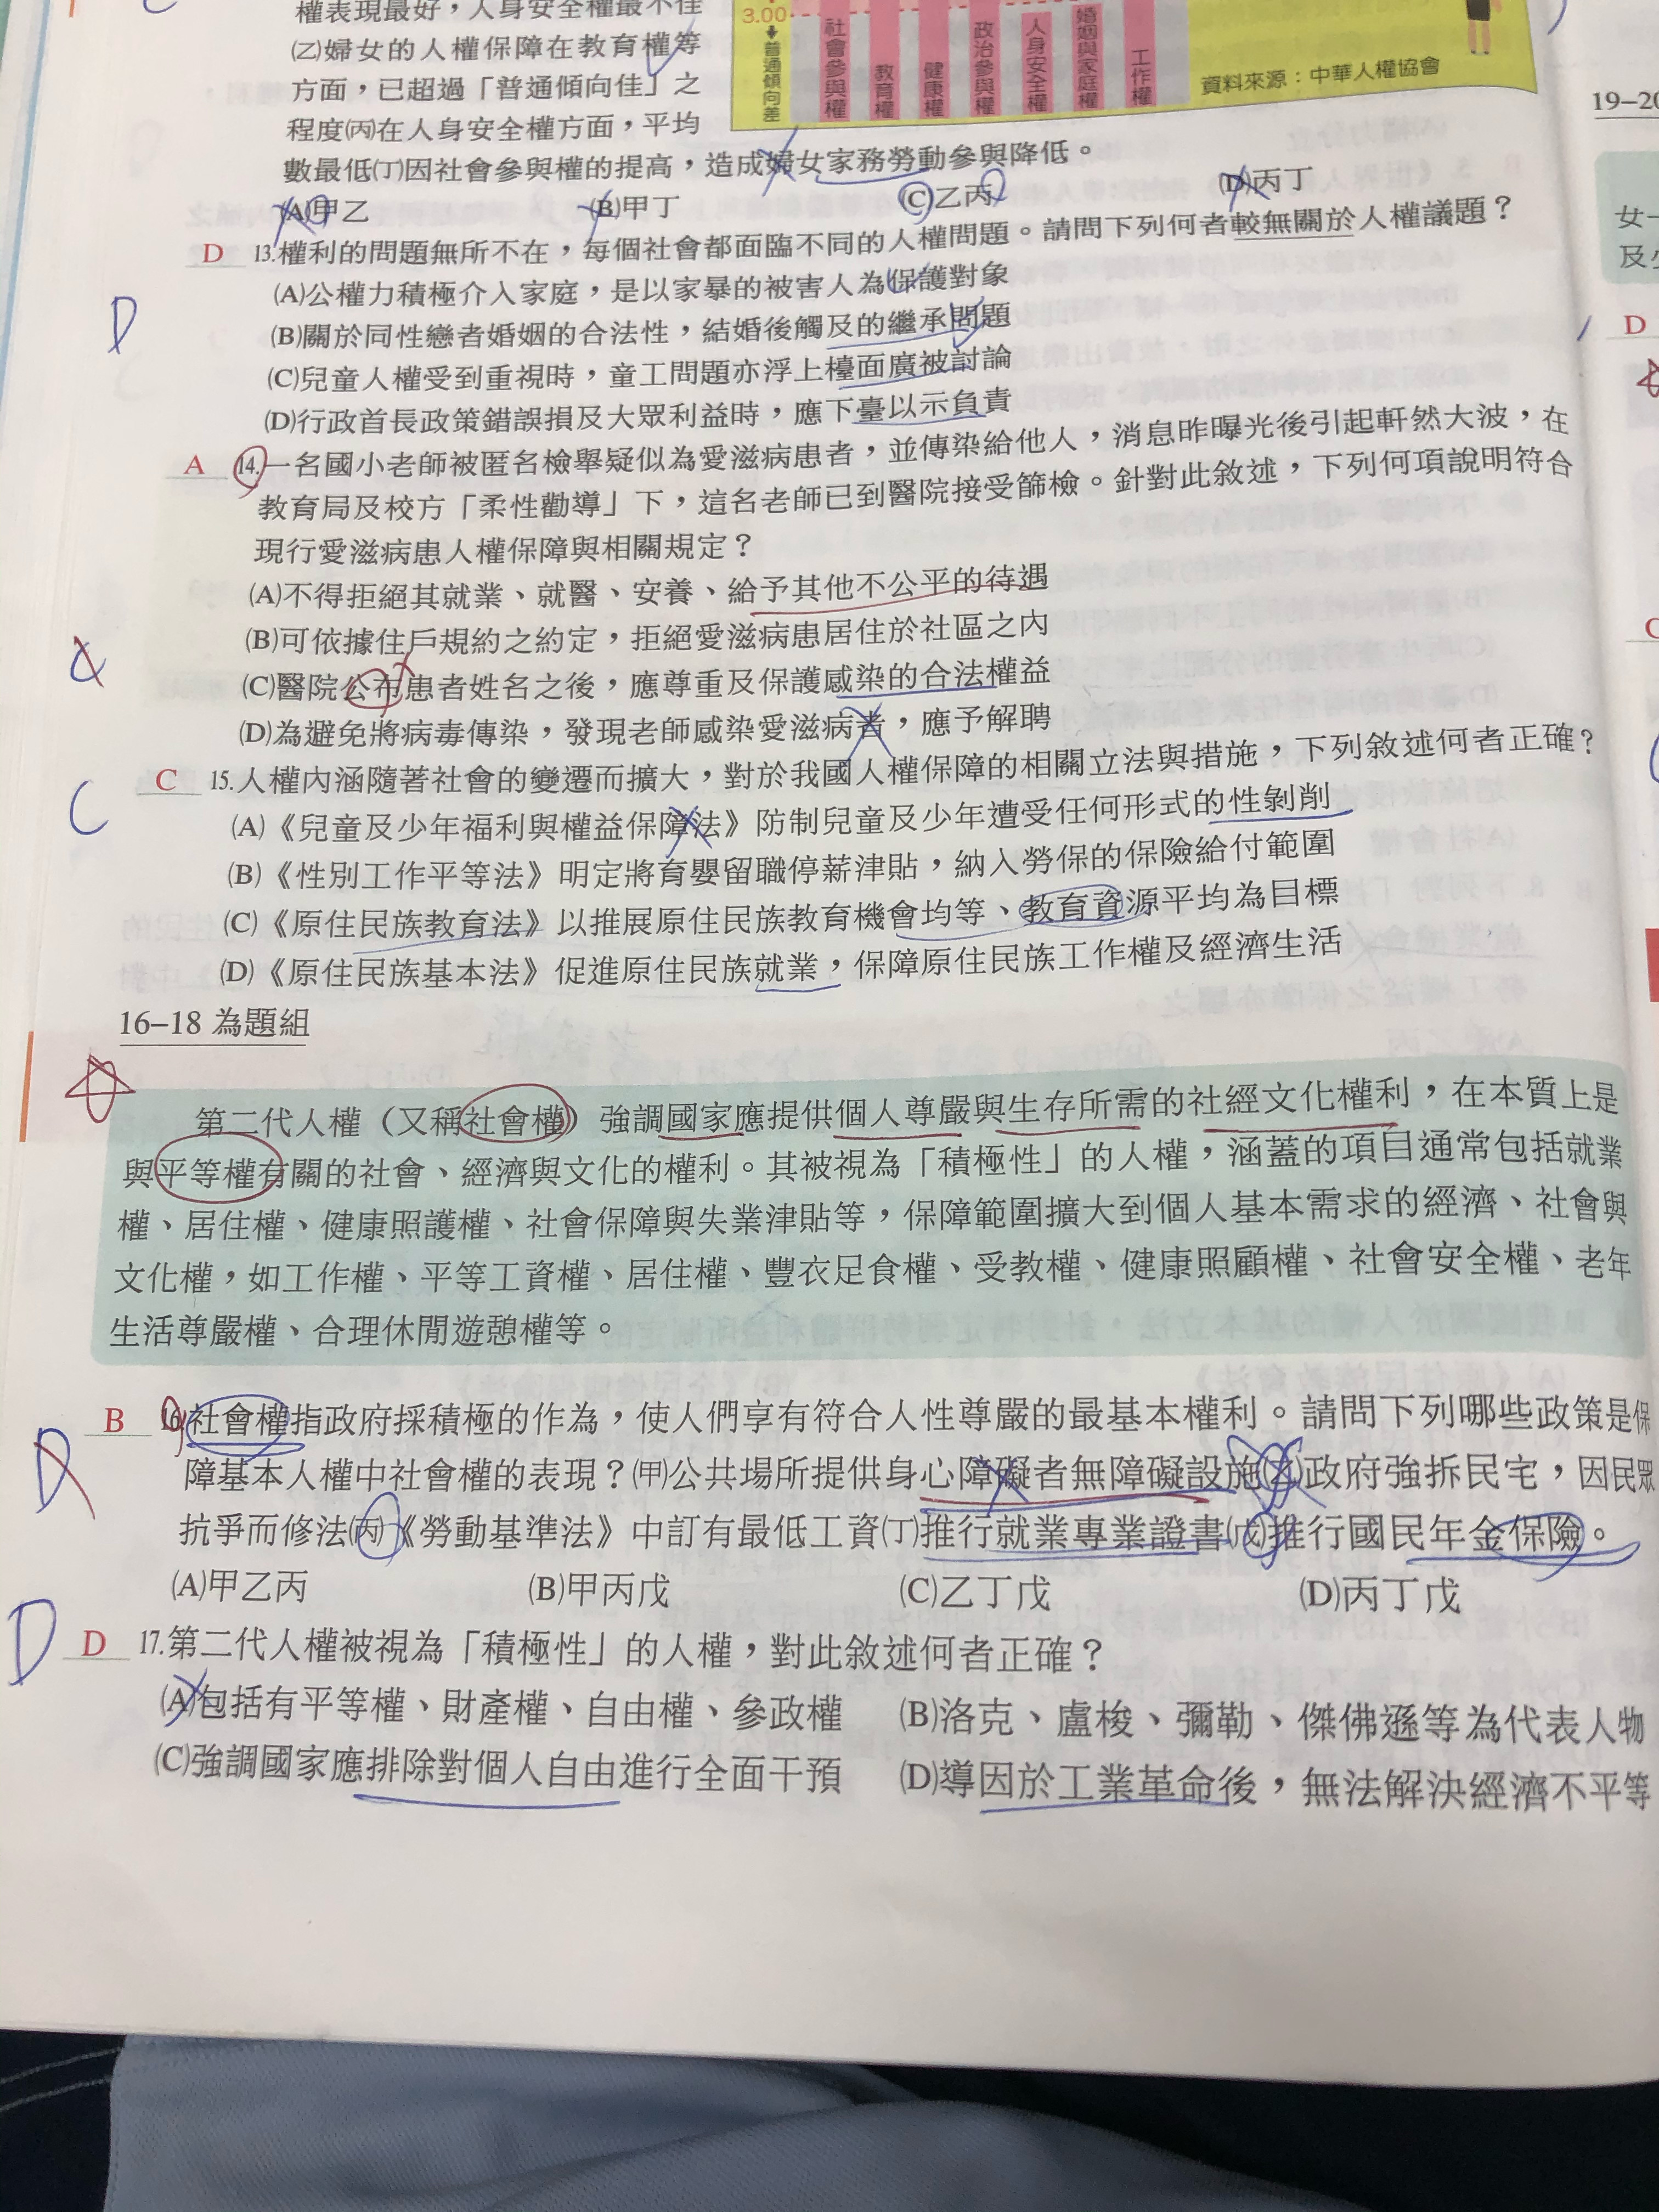 權表現最好，人身安全權最不佳
㈡婦女的人權保障在教育權等
方面，已超過「普通傾向佳」之
程度㈢在人身安全權方面，平均
數最低㈣因社會參與權的提高，造成婦女家務勞動參與降低。
3.00
普通傾向差
社會參與權
教育權
健康權
政治參與權
人身安全權
婚姻與家庭權
工作權
資料來源：中華人權協會
(A)甲乙 (B)甲丁 (C)乙丙 (D)丙丁
D 13.權利的問題無所不在，每個社會都面臨不同的人權問題。請問下列何者較無關於人權議題？
(A)公權力積極介入家庭，是以家暴的被害人為保護對象
(B)關於同性戀者婚姻的合法性，結婚後觸及的繼承問題
(C)兒童人權受到重視時，童工問題亦浮上檯面廣被討論
D
(D)行政首長政策錯誤損及大眾利益時，應下臺以示負責
A 14.一名國小老師被匿名檢舉疑似為愛滋病患者，並傳染給他人，消息昨曝光後引起軒然大波，在
教育局及校方「柔性勸導」下，這名老師已到醫院接受篩檢。針對此敘述，下列何項說明符合
現行愛滋病患人權保障與相關規定？
(A)不得拒絕其就業、就醫、安養、給予其他不公平的待遇
(B)可依據住戶規約之約定，拒絕愛滋病患居住於社區之內
(C)醫院公布患者姓名之後，應尊重及保護感染的合法權益
(D)為避免將病毒傳染，發現老師感染愛滋病者，應予解聘
C 15.人權內涵隨著社會的變遷而擴大，對於我國人權保障的相關立法與措施，下列敘述何者正確？
C
(A)《兒童及少年福利與權益保障法》防制兒童及少年遭受任何形式的性剝削
(B)《性別工作平等法》明定將育嬰留職停薪津貼，納入勞保的保險給付範圍
(C)《原住民族教育法》以推展原住民族教育機會均等、教育資源平均為目標
(D)《原住民族基本法》促進原住民族就業，保障原住民族工作權及經濟生活
16–18 為題組
第二代人權（又稱社會權）強調國家應提供個人尊嚴與生存所需的社經文化權利，在本質上是
與平等權有關的社會、經濟與文化的權利。其被視為「積極性」的人權，涵蓋的項目通常包括就業
權、居住權、健康照護權、社會保障與失業津貼等，保障範圍擴大到個人基本需求的經濟、社會與
文化權，如工作權、平等工資權、居住權、豐衣足食權、受教權、健康照顧權、社會安全權、老年
生活尊嚴權、合理休閒遊憩權等。
B 16.社會權指政府採積極的作為，使人們享有符合人性尊嚴的最基本權利。請問下列哪些政策是保
D
障基本人權中社會權的表現？(甲)公共場所提供身心障礙者無障礙設施(乙)政府強拆民宅，因民眾
抗爭而修法(丙)《勞動基準法》中訂有最低工資(丁)推行就業專業證書(戊)推行國民年金保險。
(A)甲乙丙 (B)甲丙戊 (C)乙丁戊 (D)丙丁戊
D
D 17.第二代人權被視為「積極性」的人權，對此敘述何者正確？
(A)包括有平等權、財產權、自由權、參政權 (B)洛克、盧梭、彌勒、傑佛遜等為代表人物
(C)強調國家應排除對個人自由進行全面干預 (D)導因於工業革命後，無法解決經濟不平等
19–20
女
及
D
C